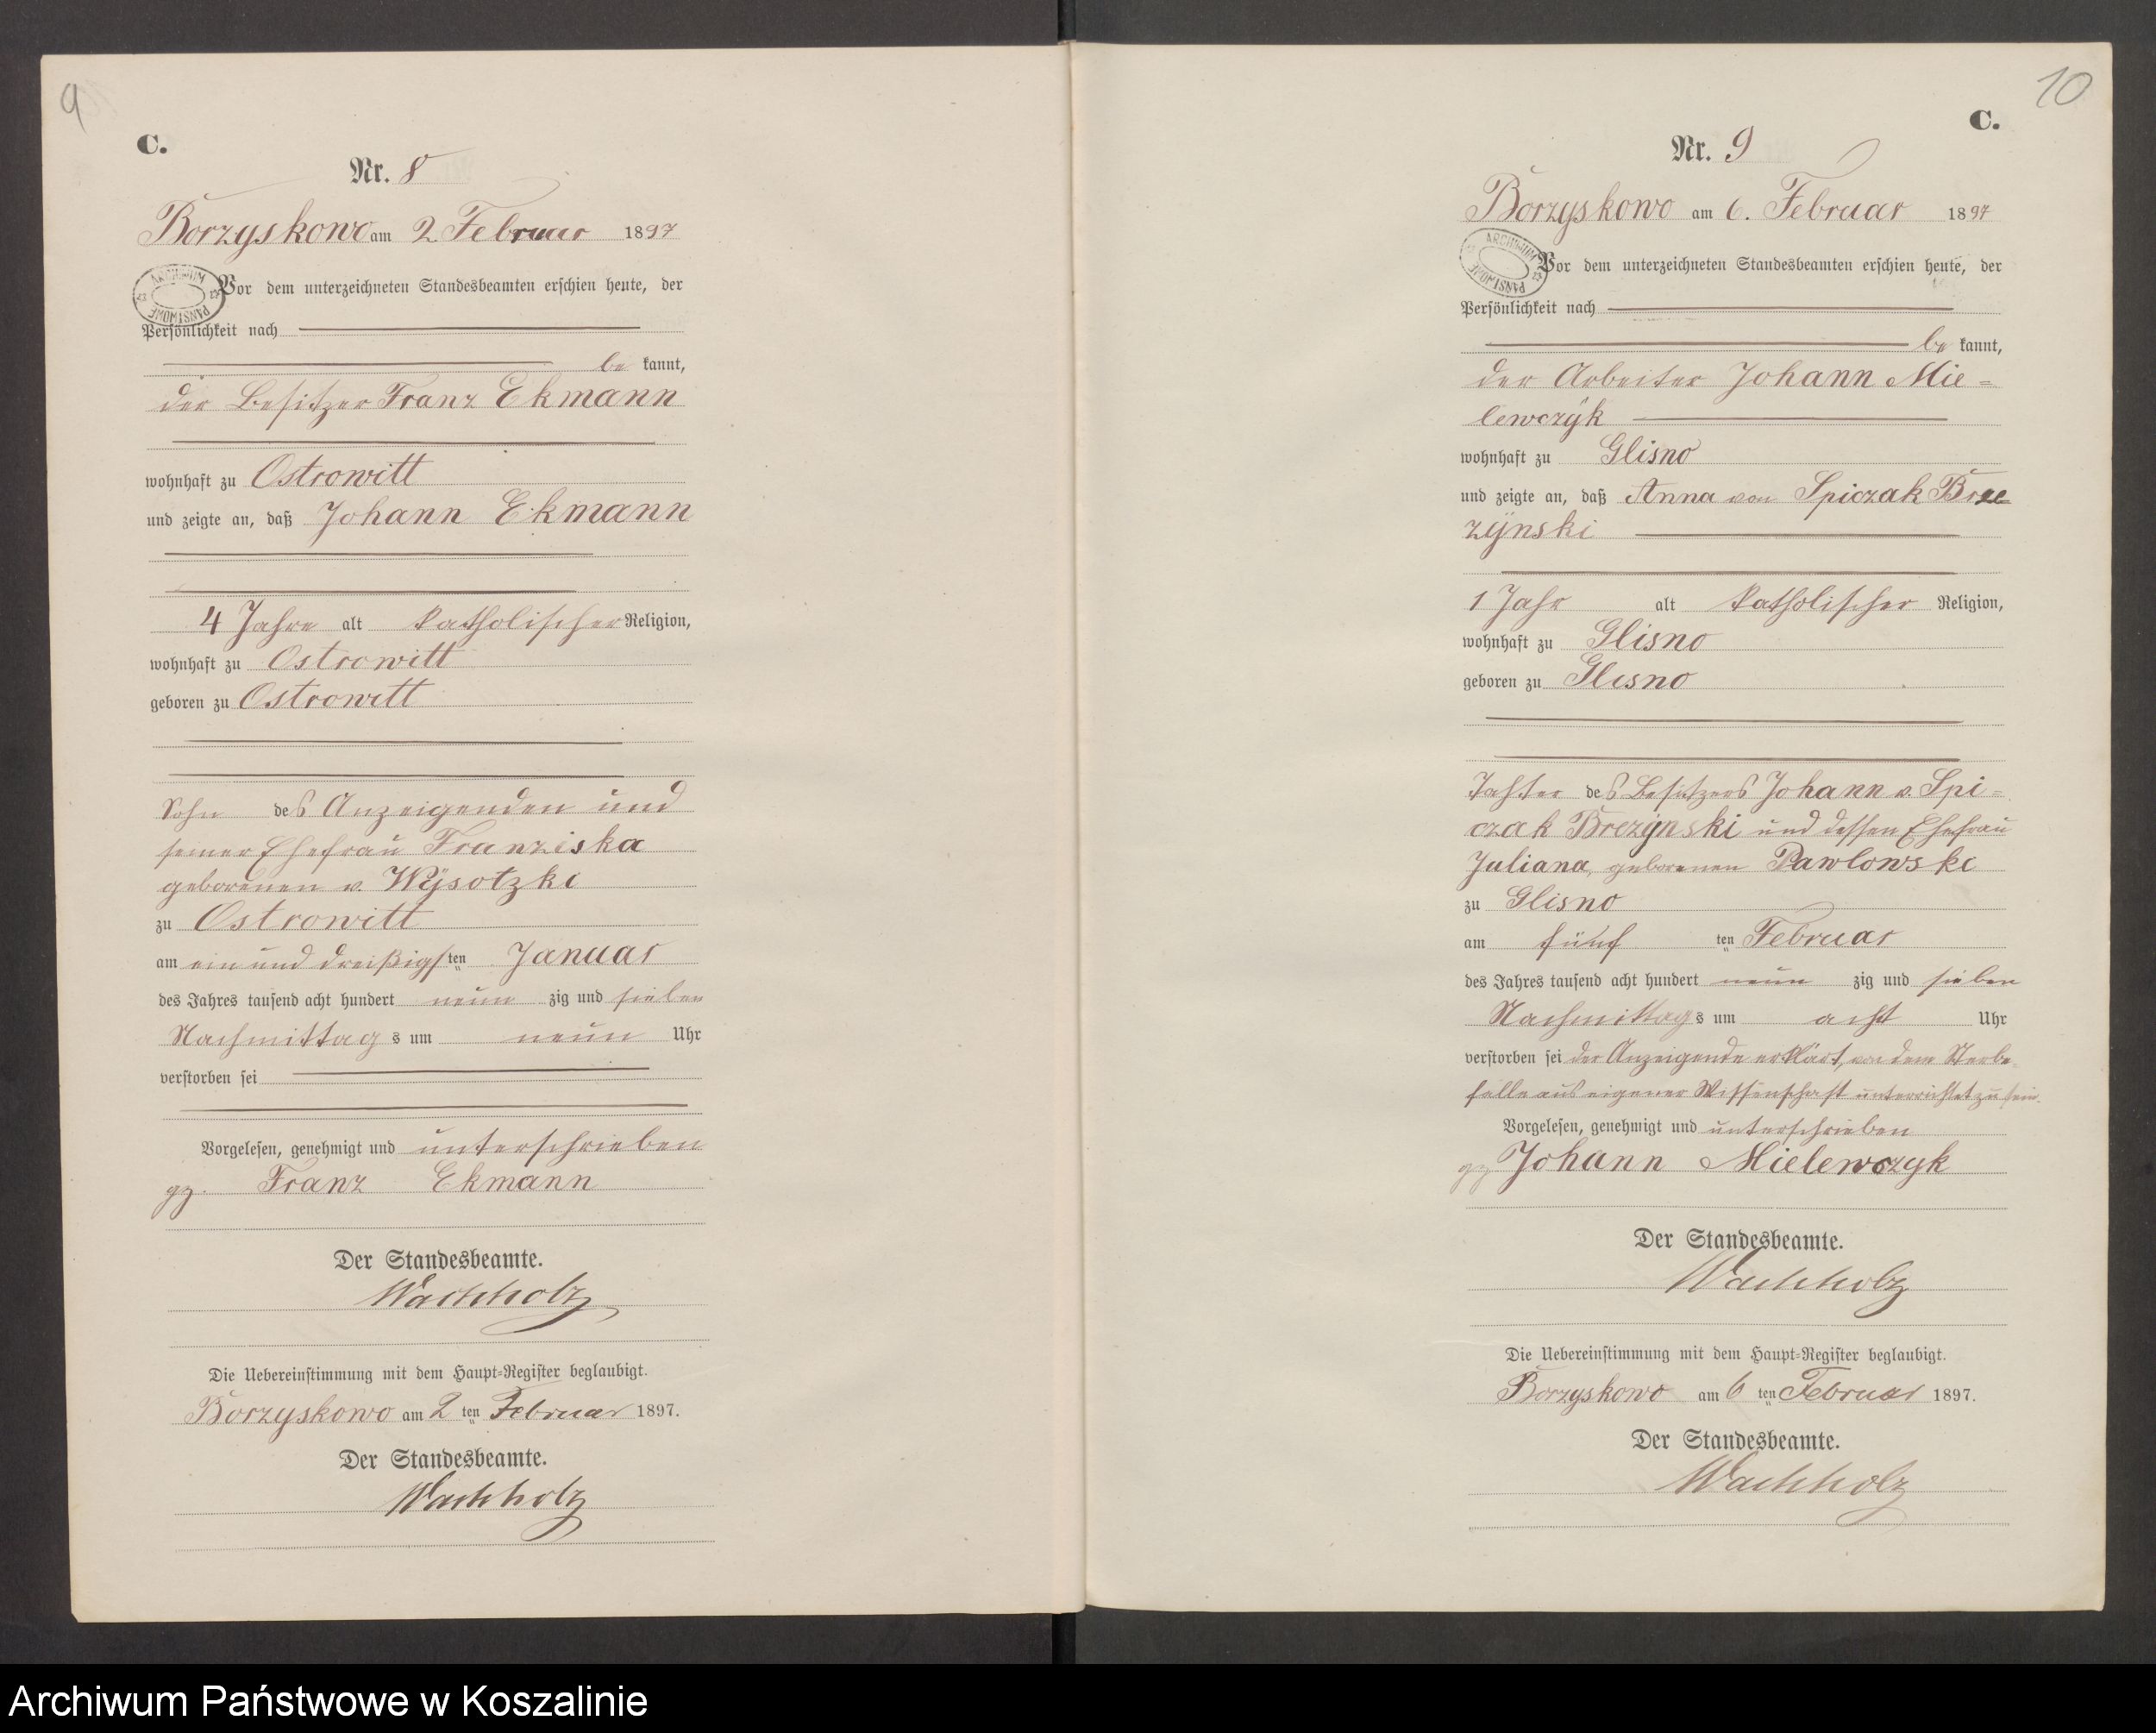 9
C.
Nr. 8
Borzyskowo am 2 Februar 1897
ARCHIWUM PAŃSTWOWE
Vor dem unterzeichneten Standesbeamten erschien heute, der
Persönlichkeit nach
be kannt,
der Besitzer Franz Ekmann
wohnhaft zu Ostrowitt
und zeigte an, daß Johann Ekmann
4 Jahre alt katholischer Religion,
wohnhaft zu Ostrowitt
geboren zu Ostrowitt
Sohn des Anzeigenden und
seiner Ehefrau Franziska
geborenen v. Wÿsotzki
zu Ostrowitt
am ein und dreißigsten Januar
des Jahres tausend acht hundert neun zig und sieben
Nachmittag s um neun Uhr
verstorben sei
Vorgelesen, genehmigt und unterschrieben
gz. Franz Ekmann
Der Standesbeamte.
Wachholz
Die Uebereinstimmung mit dem Haupt-Register beglaubigt.
Borzyskowo am 2 ten Februar 1897.
Der Standesbeamte.
Wachholz
10
C.
Nr. 9
Borzyskowo am 6. Februar 1897
ARCHIWUM PAŃSTWOWE
Vor dem unterzeichneten Standesbeamten erschien heute, der
Persönlichkeit nach
be kannt,
der Arbeiter Johann Mie=
lewczÿk
wohnhaft zu Glisno
und zeigte an, daß Anna von Spiczak Bre=
zÿnski
1 Jahr alt katholischer Religion,
wohnhaft zu Glisno
geboren zu Glisno
Tochter des Besitzers Johann v. Spi=
czak Brezÿnski und dessen Ehefrau
Juliana, geborenen Pawlowski
zu Glisno
am fünf ten Februar
des Jahres tausend acht hundert neun zig und sieben
Nachmittag s um acht Uhr
verstorben sei der Anzeigende erklärt, von dem Sterbe=
falle aus eigener Wissenschaft unterrichtet zu sein.
Vorgelesen, genehmigt und unterschrieben
gz Johann Mielewczyk
Der Standesbeamte.
Wachholz
Die Uebereinstimmung mit dem Haupt-Register beglaubigt.
Borzyskowo am 6 ten Februar 1897.
Der Standesbeamte.
Wachholz
Archiwum Państwowe w Koszalinie